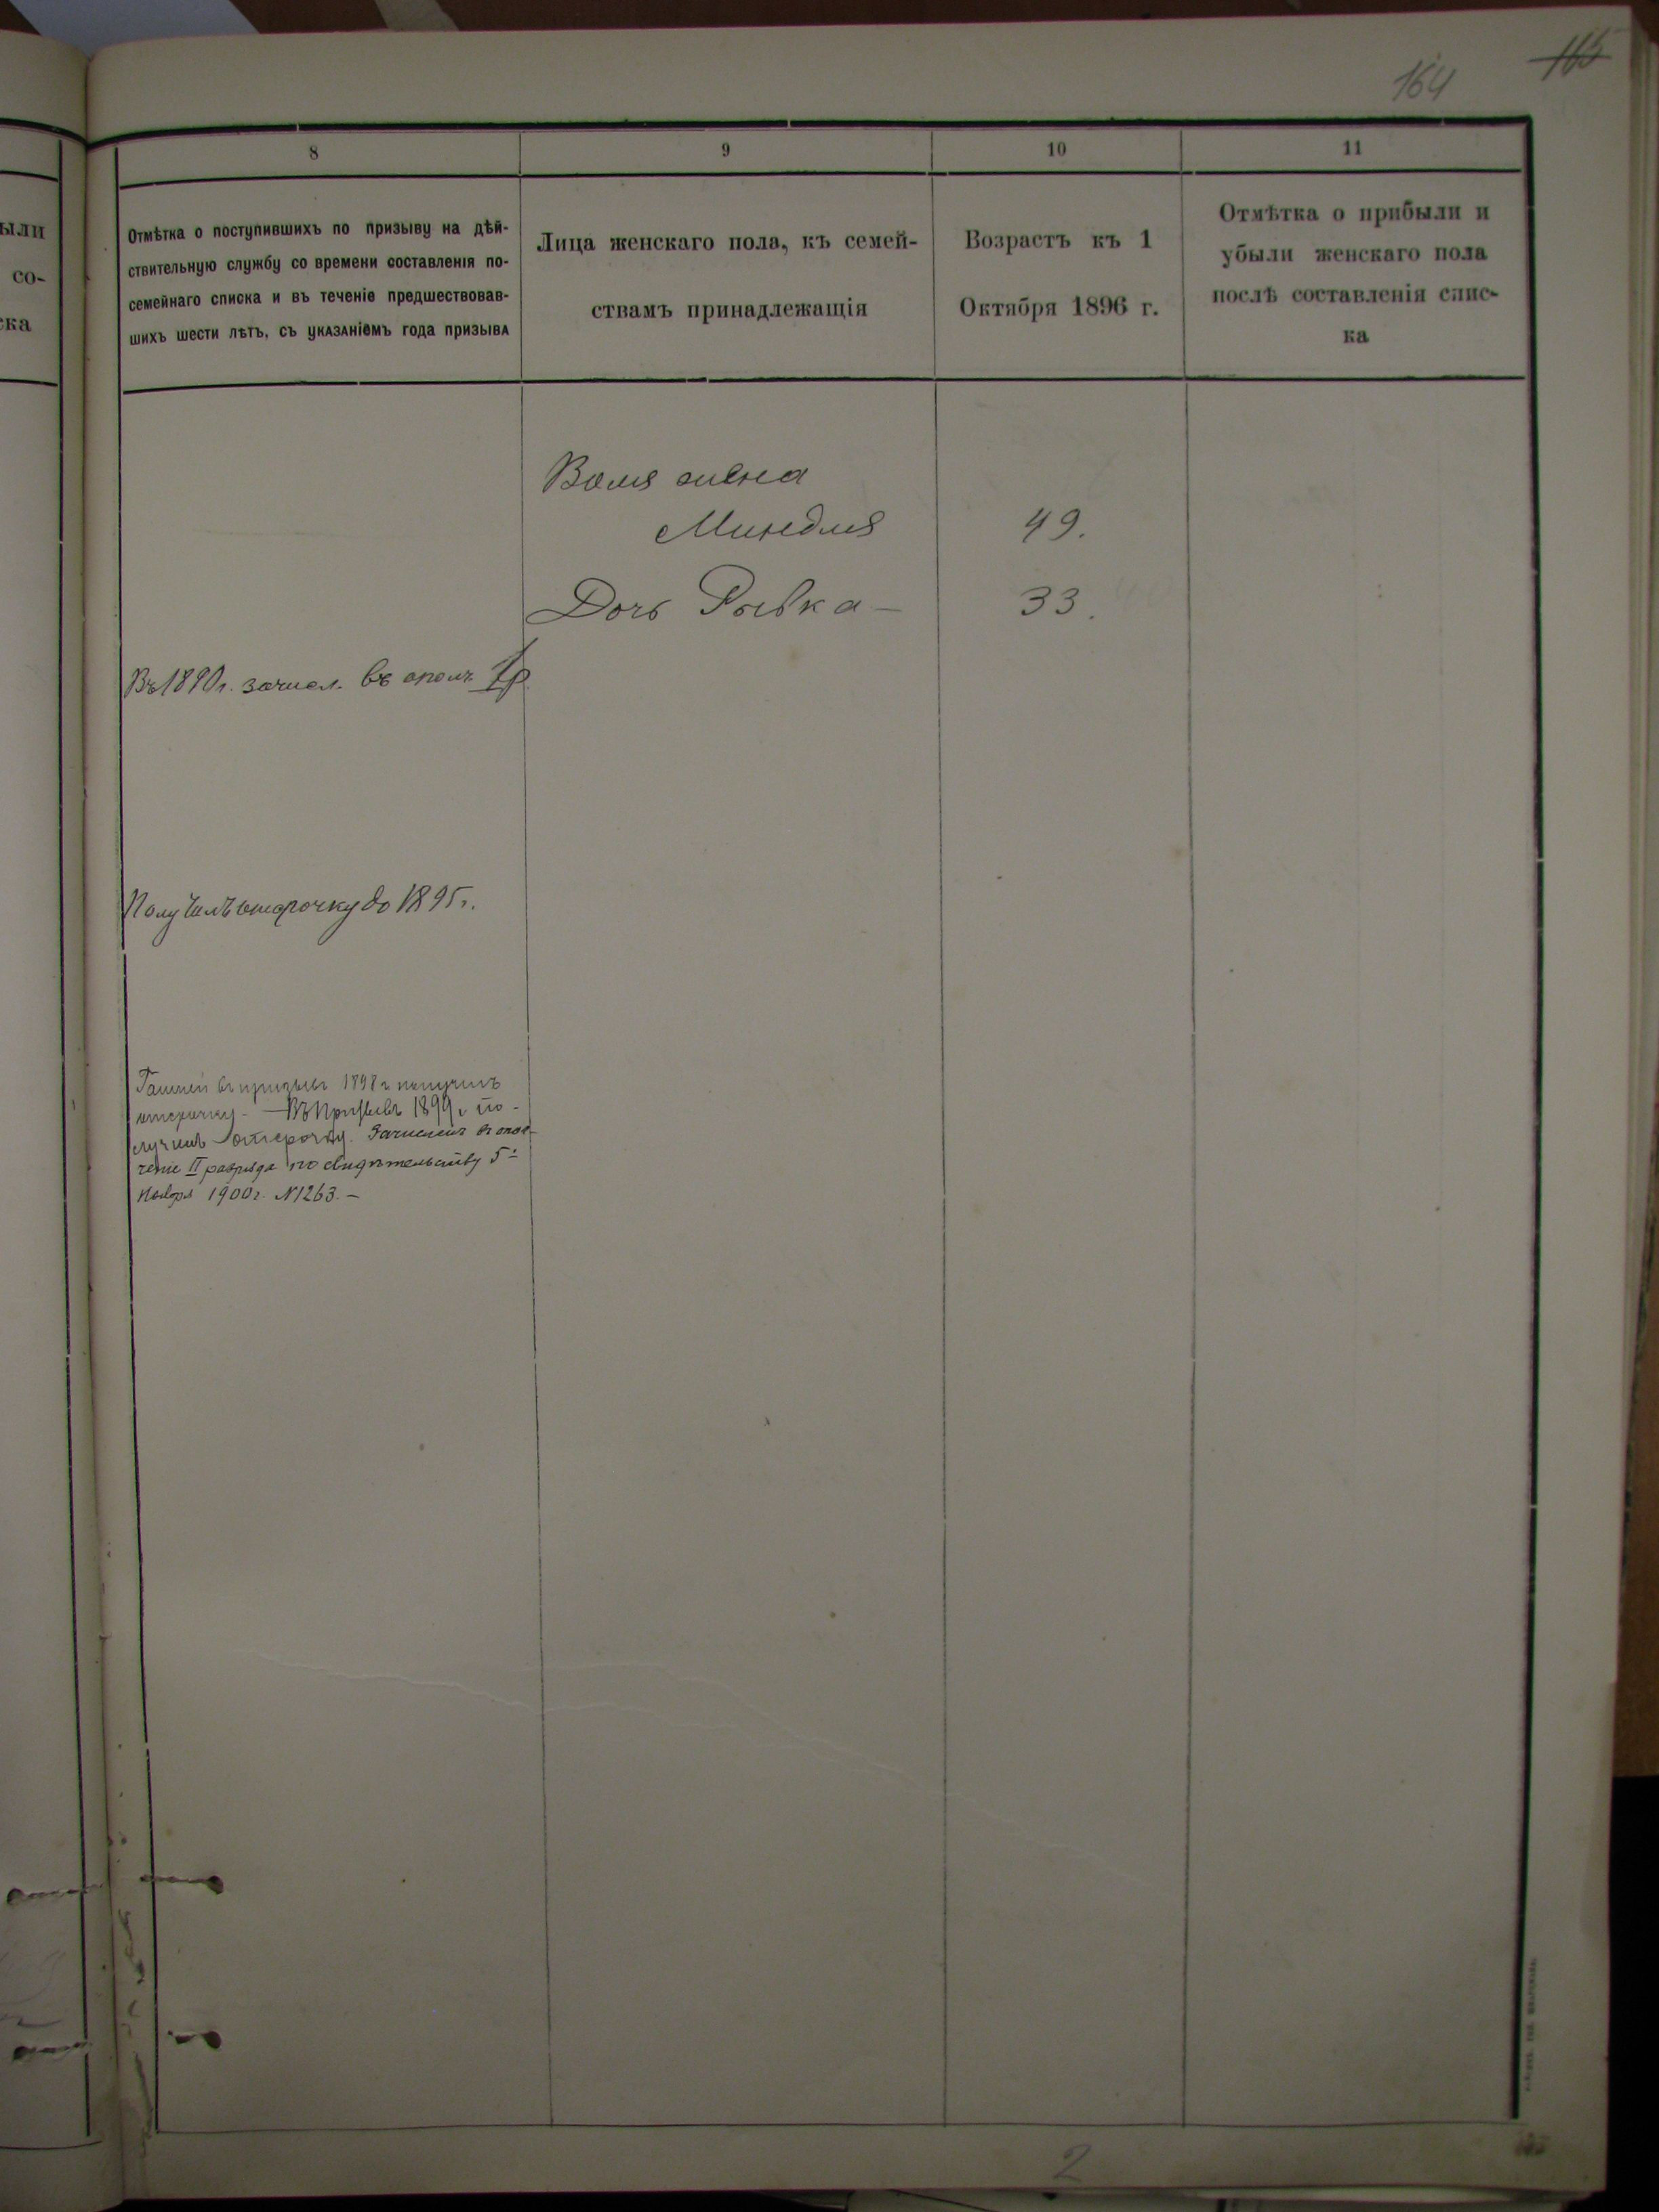 165
164
8
9
10
11
ыли
со-
ска
Отмѣтка о поступившихъ по призыву на дѣй-
ствительную службу со времени составленія по-
семейнаго списка и въ теченіе предшествовав-
шихъ шести лѣтъ, съ указаніемъ года призыва
Лица женскаго пола, къ семей-
ствамъ принадлежащія
Возрастъ къ 1
Октября 1896 г.
Отмѣтка о прибыли и
убыли женскаго пола
послѣ составленія спис-
ка
жена
Миндля
49.
Дочь Рывка —
33.
Въ 1890 г. зачисл. въ ополч. Iр
Получилъ отсрочку до 1895 г.
въ призывъ 1898 г получилъ
отсрочку. — Въ призывъ 1899 г. по-
лучилъ отсрочку. Зачисленъ въ опол-
ченіе II разряда по свидѣтельству 5:
Ноября 1900 г. N 1263. —
2